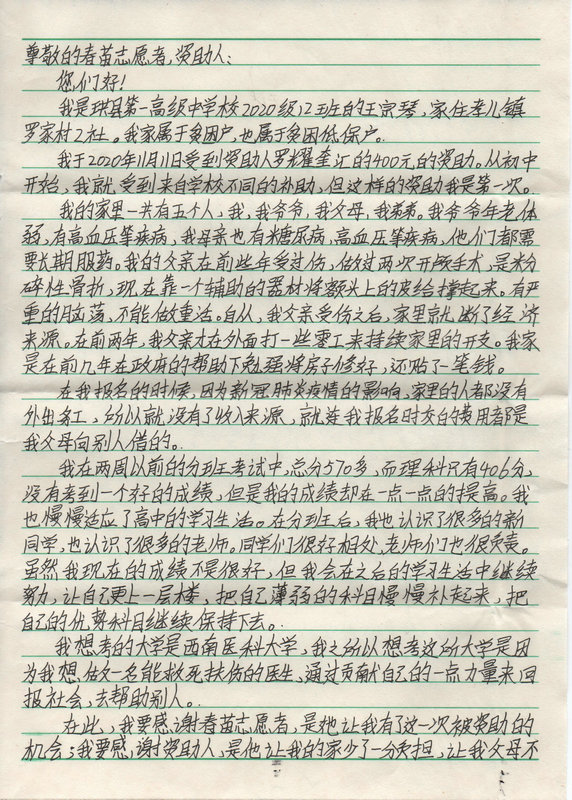 尊敬的春苗志愿者,资助人:
您们好!
我是珙县第一高级中学校2020级12班的王宗琴,家住孝儿镇
罗家村2社。我家属于贫困户,也属于贫困低保户。
我于2020年11月11日受到资助人罗耀奎汇的400元的资助。从初中
开始,我就受到来自学校不同的补助,但这样的资助我是第一次。
我的家里一共有五个人,我,我爷爷,我父母,我弟弟。我爷爷年老体
弱,有高血压等疾病,我母亲也有糖尿病,高血压等疾病,他们都需
要长期服药。我的父亲在前些年受过伤,做过两次开颅手术,是粉
碎性骨折,现在靠一个辅助的器材将额头上的皮给撑起来。有严
重的脑荡,不能做重活。自从,我父亲受伤之后,家里就断了经济
来源。在前两年,我父亲才在外面打一些零工来持续家里的开支。我家
是在前几年在政府的帮助下勉强将房子修好,还贴了一笔钱。
在我报名的时候,因为新冠肺炎疫情的影响,家里的人都没有
外出务工,所以就没有了收入来源,就连我报名时交的费用都是
我父母向别人借的。
我在两周以前的分班考试中,总分570多,而理科只有406分,
没有考到一个好的成绩,但是我的成绩却在一点一点的提高。我
也慢慢适应了高中的学习生活。在分班后,我也认识了很多的新
同学,也认识了很多的老师。同学们很好相处,老师们也很负责。
虽然我现在的成绩不是很好,但我会在之后的学习生活中继续
努力,让自己更上一层楼,把自己薄弱的科目慢慢补起来,把
自己的优势科目继续保持下去。
我想考的大学是西南医科大学,我之所以想考这所大学是因
为我想做一名能救死扶伤的医生,通过贡献自己的一点力量来回
报社会,去帮助别人。
在此,我要感谢春苗志愿者,是她让我有了这一次被资助的
机会;我要感谢资助人,是他让我的家少了一分负担,让我父母不